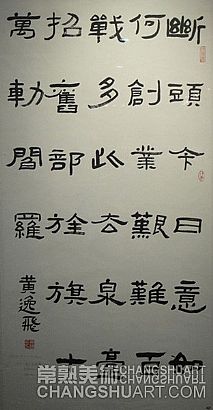 斷頭今日意如
何創業艱難百
戰多此去泉臺
招舊部旌旗十
萬斬閻羅
黃逸飛
常熟美術
CHANGSHUART.COM